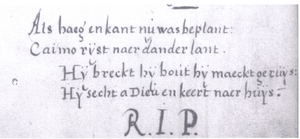 Als haeg en kant nu was beplant:
Caimo ryst naer dander lant.
Hÿ breckt hÿ bout hÿ maeckt geruÿs:
Hÿ secht a Dieu en keert naer huÿs.
R.I.P.